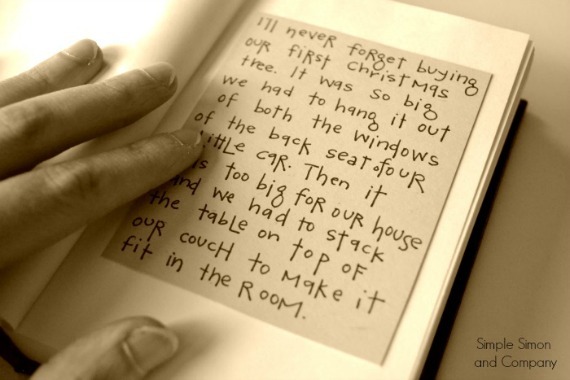 I'll never forget buying
our first christmas
tree. It was so big
we had to hang it out
of both the windows
of the back seat of our
little car. Then it
was too big for our house
and we had to stack
the table on top of
our couch to make it
fit in the room.
Simple Simon
and Company